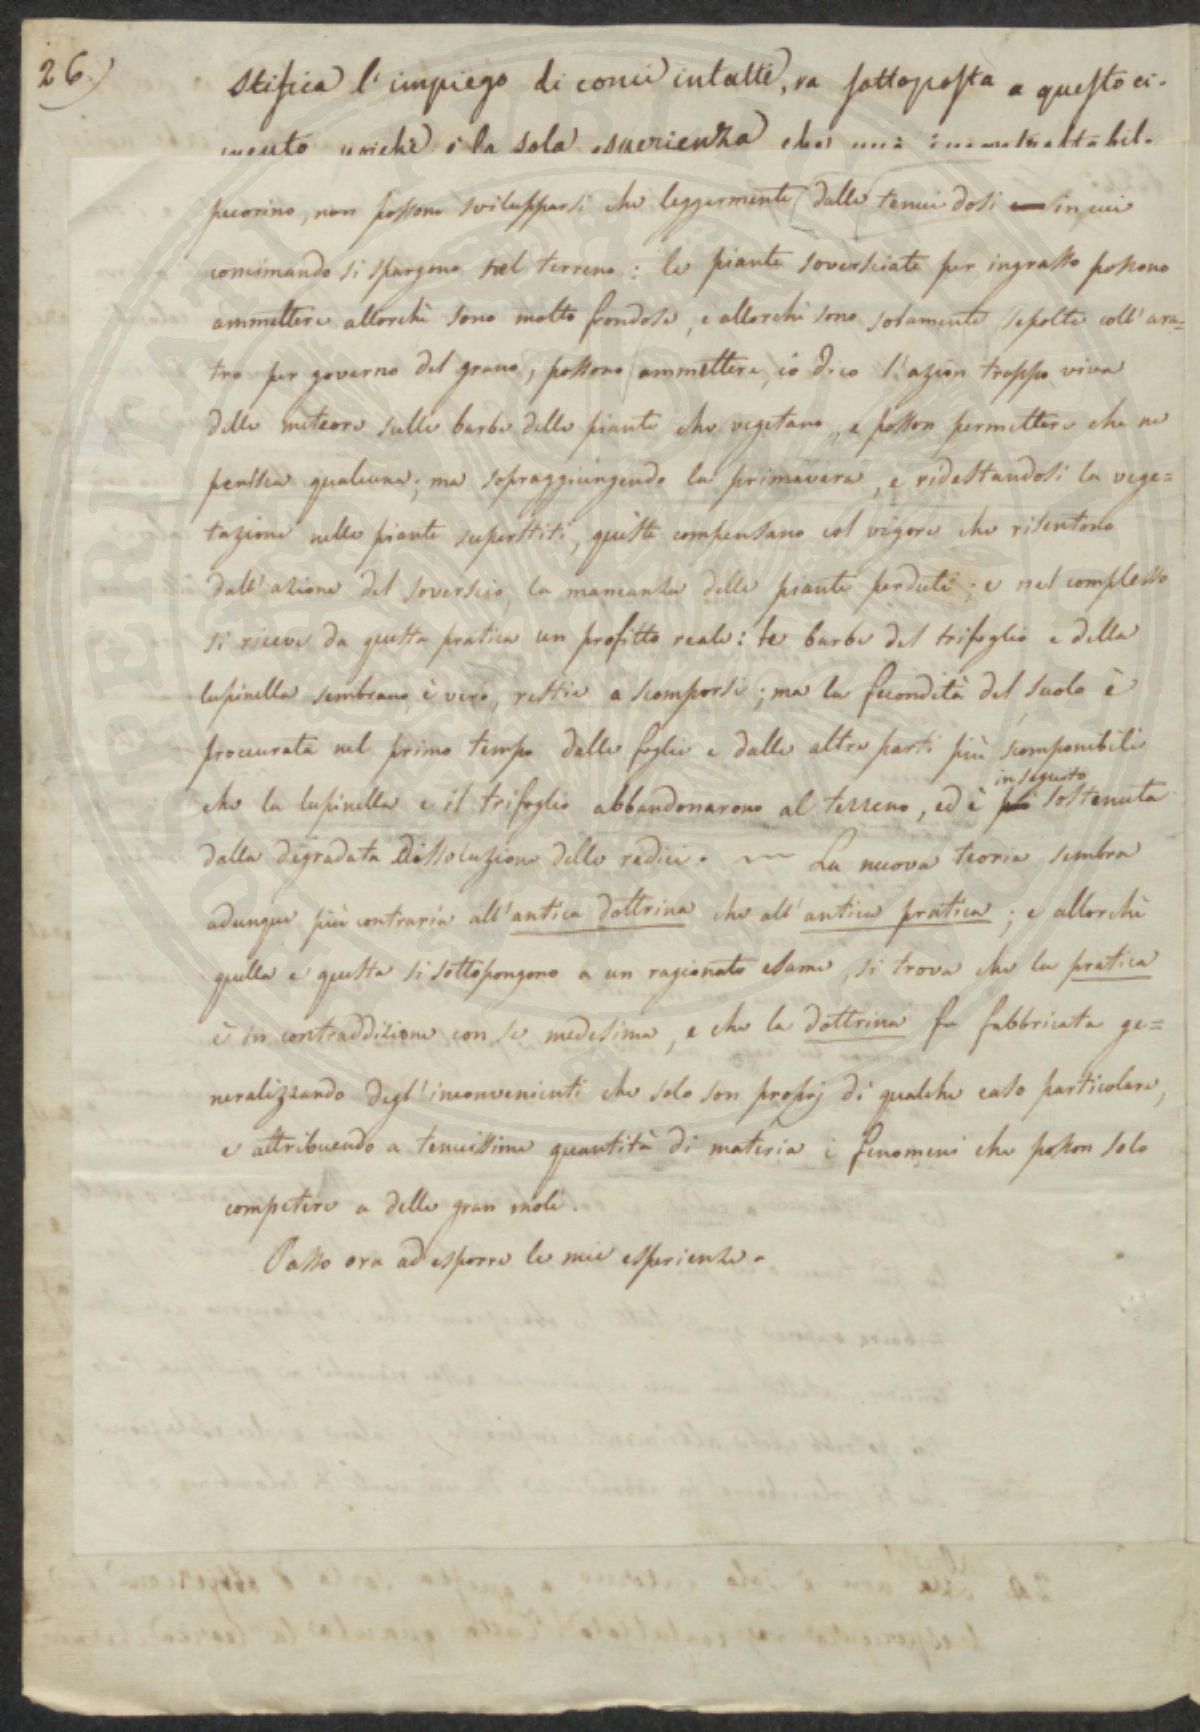 26.)
stifica l'impiego di conci intatti, va sottoposta a questo ci-
mento poichè è la sola esperienza che può
pecorino, non possono svilupparsi che leggermente dalle tenui dosi in cui
concimando si spargono nel terreno: le piante soversciate per ingrasso possono
ammettere allorchè sono molto frondose, e allorchè sono solamente sepolte coll'ara=
tro per governo del grano, possono ammettere, io dico l'azion troppo viva
delle meteore sulle barbe delle piante che vegetano, e posson permettere che ne
perisca qualcuna; ma sopraggiungendo la primavera, e ridestandosi la vege=
tazione nelle piante superstiti, queste compensano col vigore che risentono
dall'azione del soverscio, la mancanza delle piante perdute; e nel complesso
si riceve da questa pratica un profitto reale: le barbe del trifoglio e della
lupinella sembrano, è vero, restie a scomporsi; ma la fecondità del suolo è
procurata nel primo tempo dalle foglie e dalle altre parti più scomponibili
in seguito
che la lupinella e il trifoglio abbandonarono al terreno, ed è sostenuta
dalla degradata dissoluzione delle radici. ~ La nuova teoria sembra
adunque più contraria all'antica dottrina che all'antica pratica; e allorchè
quella e questa si sottopongono a un ragionato esame, si trova che la pratica
è in contraddizione con se medesima, e che la dottrina fu fabbricata ge=
neralizzando degl'inconvenienti che solo son proprj di qualche caso particolare,
e attribuendo a tenuissime quantità di materia i fenomeni che posson solo
competere a delle gran moli.
Passo ora ad esporre le mie esperienze.